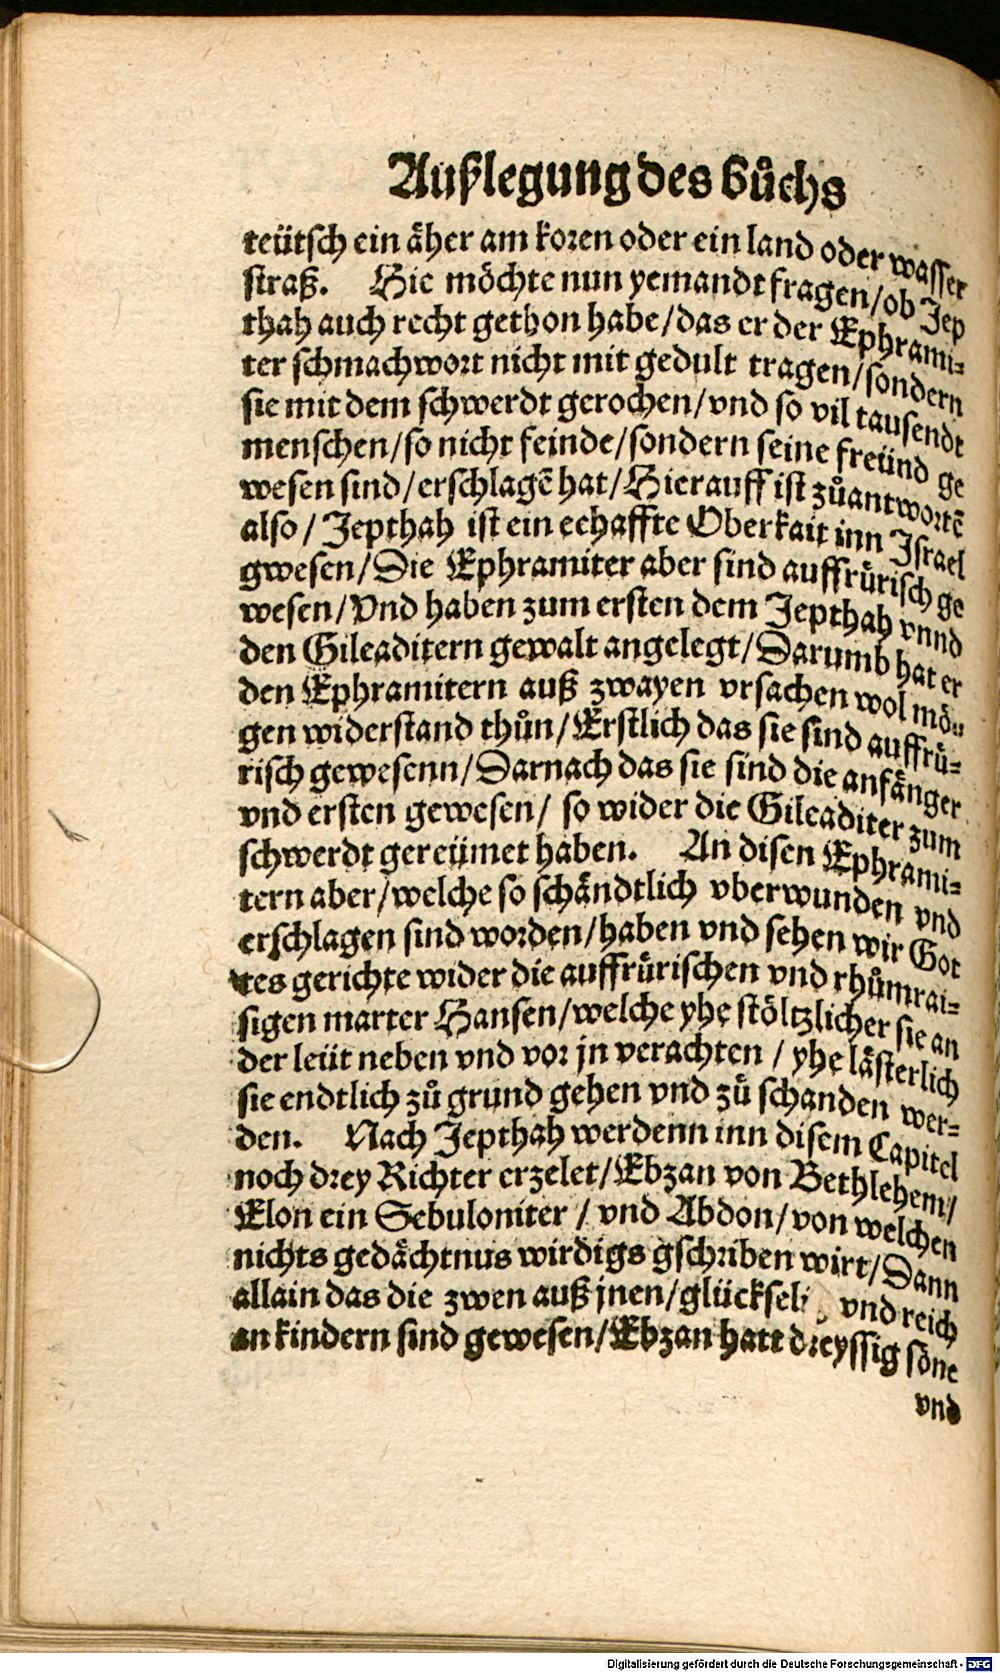 Außlegung des Bůchs
teütsch ein äher am koren oder ein land oder wasser
straß. Hie möchte nun yemandt fragen/ob Jep
thah auch recht gethon habe/das er der Ephrami-
ter schmachwort nicht mit gedult tragen/sondern
sie mit dem schwerdt gerochen/vnd so vil tausendt
menschen/so nicht feinde/sondern seine freünd ge
wesen sind/erschlagē hat/Hierauff ist zůantwortē
also/ Jepthah ist ein eehaffte Oberkait inn Israel
gwesen/Die Ephramiter aber sind auffrürisch ge
wesen/Vnd haben zum ersten dem Jepthah vnnd
den Gileaditern gewalt angelegt/Darumb hat er
den Ephramitern auß zwayen vrsachen wol mö-
gen widerstand thůn/Erstlich das sie sind auffrü-
risch gewesenn/Darnach das sie sind die anfänger
vnd ersten gewesen/ so wider die Gileaditer zum
schwerdt gereümet haben. An disen Ephrami-
tern aber/welche so schändtlich vberwunden vnd
erschlagen sind worden/haben vnd sehen wir Got
tes gerichte wider die auffrürischen vnd rhůmrai-
sigen marter Hansen/welche yhe stöltzlicher sie an
der leüt neben vnd vor jn verachten / yhe lästerlich
sie endtlich zů grund gehen vnd zů schanden wer-
den. Nach Jepthah werdenn inn disem Capitel
noch drey Richter erzelet/Ebzan von Bethlehem/
Elon ein Sebuloniter / vnd Abdon/von welchen
nichts gedächtnus wirdigs gschriben wirt/Dann
allain das die zwen auß jnen/glücksel vnd reich
an kindern sind gewesen/Ebzan hatt dreyssig söne
vnd
Digitalisierung gefördert durch die Deutsche Forschungsgemeinschaft - DFG